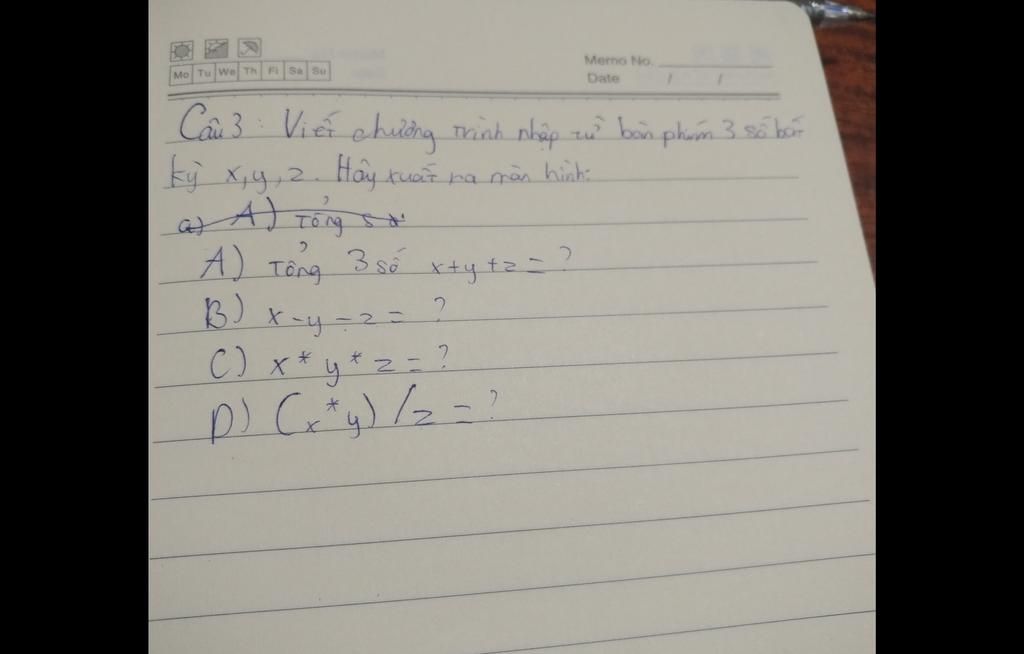 Mo Tu We Th Fi Sa Su
Memo No.
Date / /
Câu 3: Viết chương trình nhập từ bàn phím 3 số bất
kỳ x, y, z. Hãy xuất ra màn hình:
a) A) Tổng s x
A) Tổng 3 số x+y+z = ?
B) x - y - z = ?
C) x * y * z = ?
D) (x * y) / z = ?